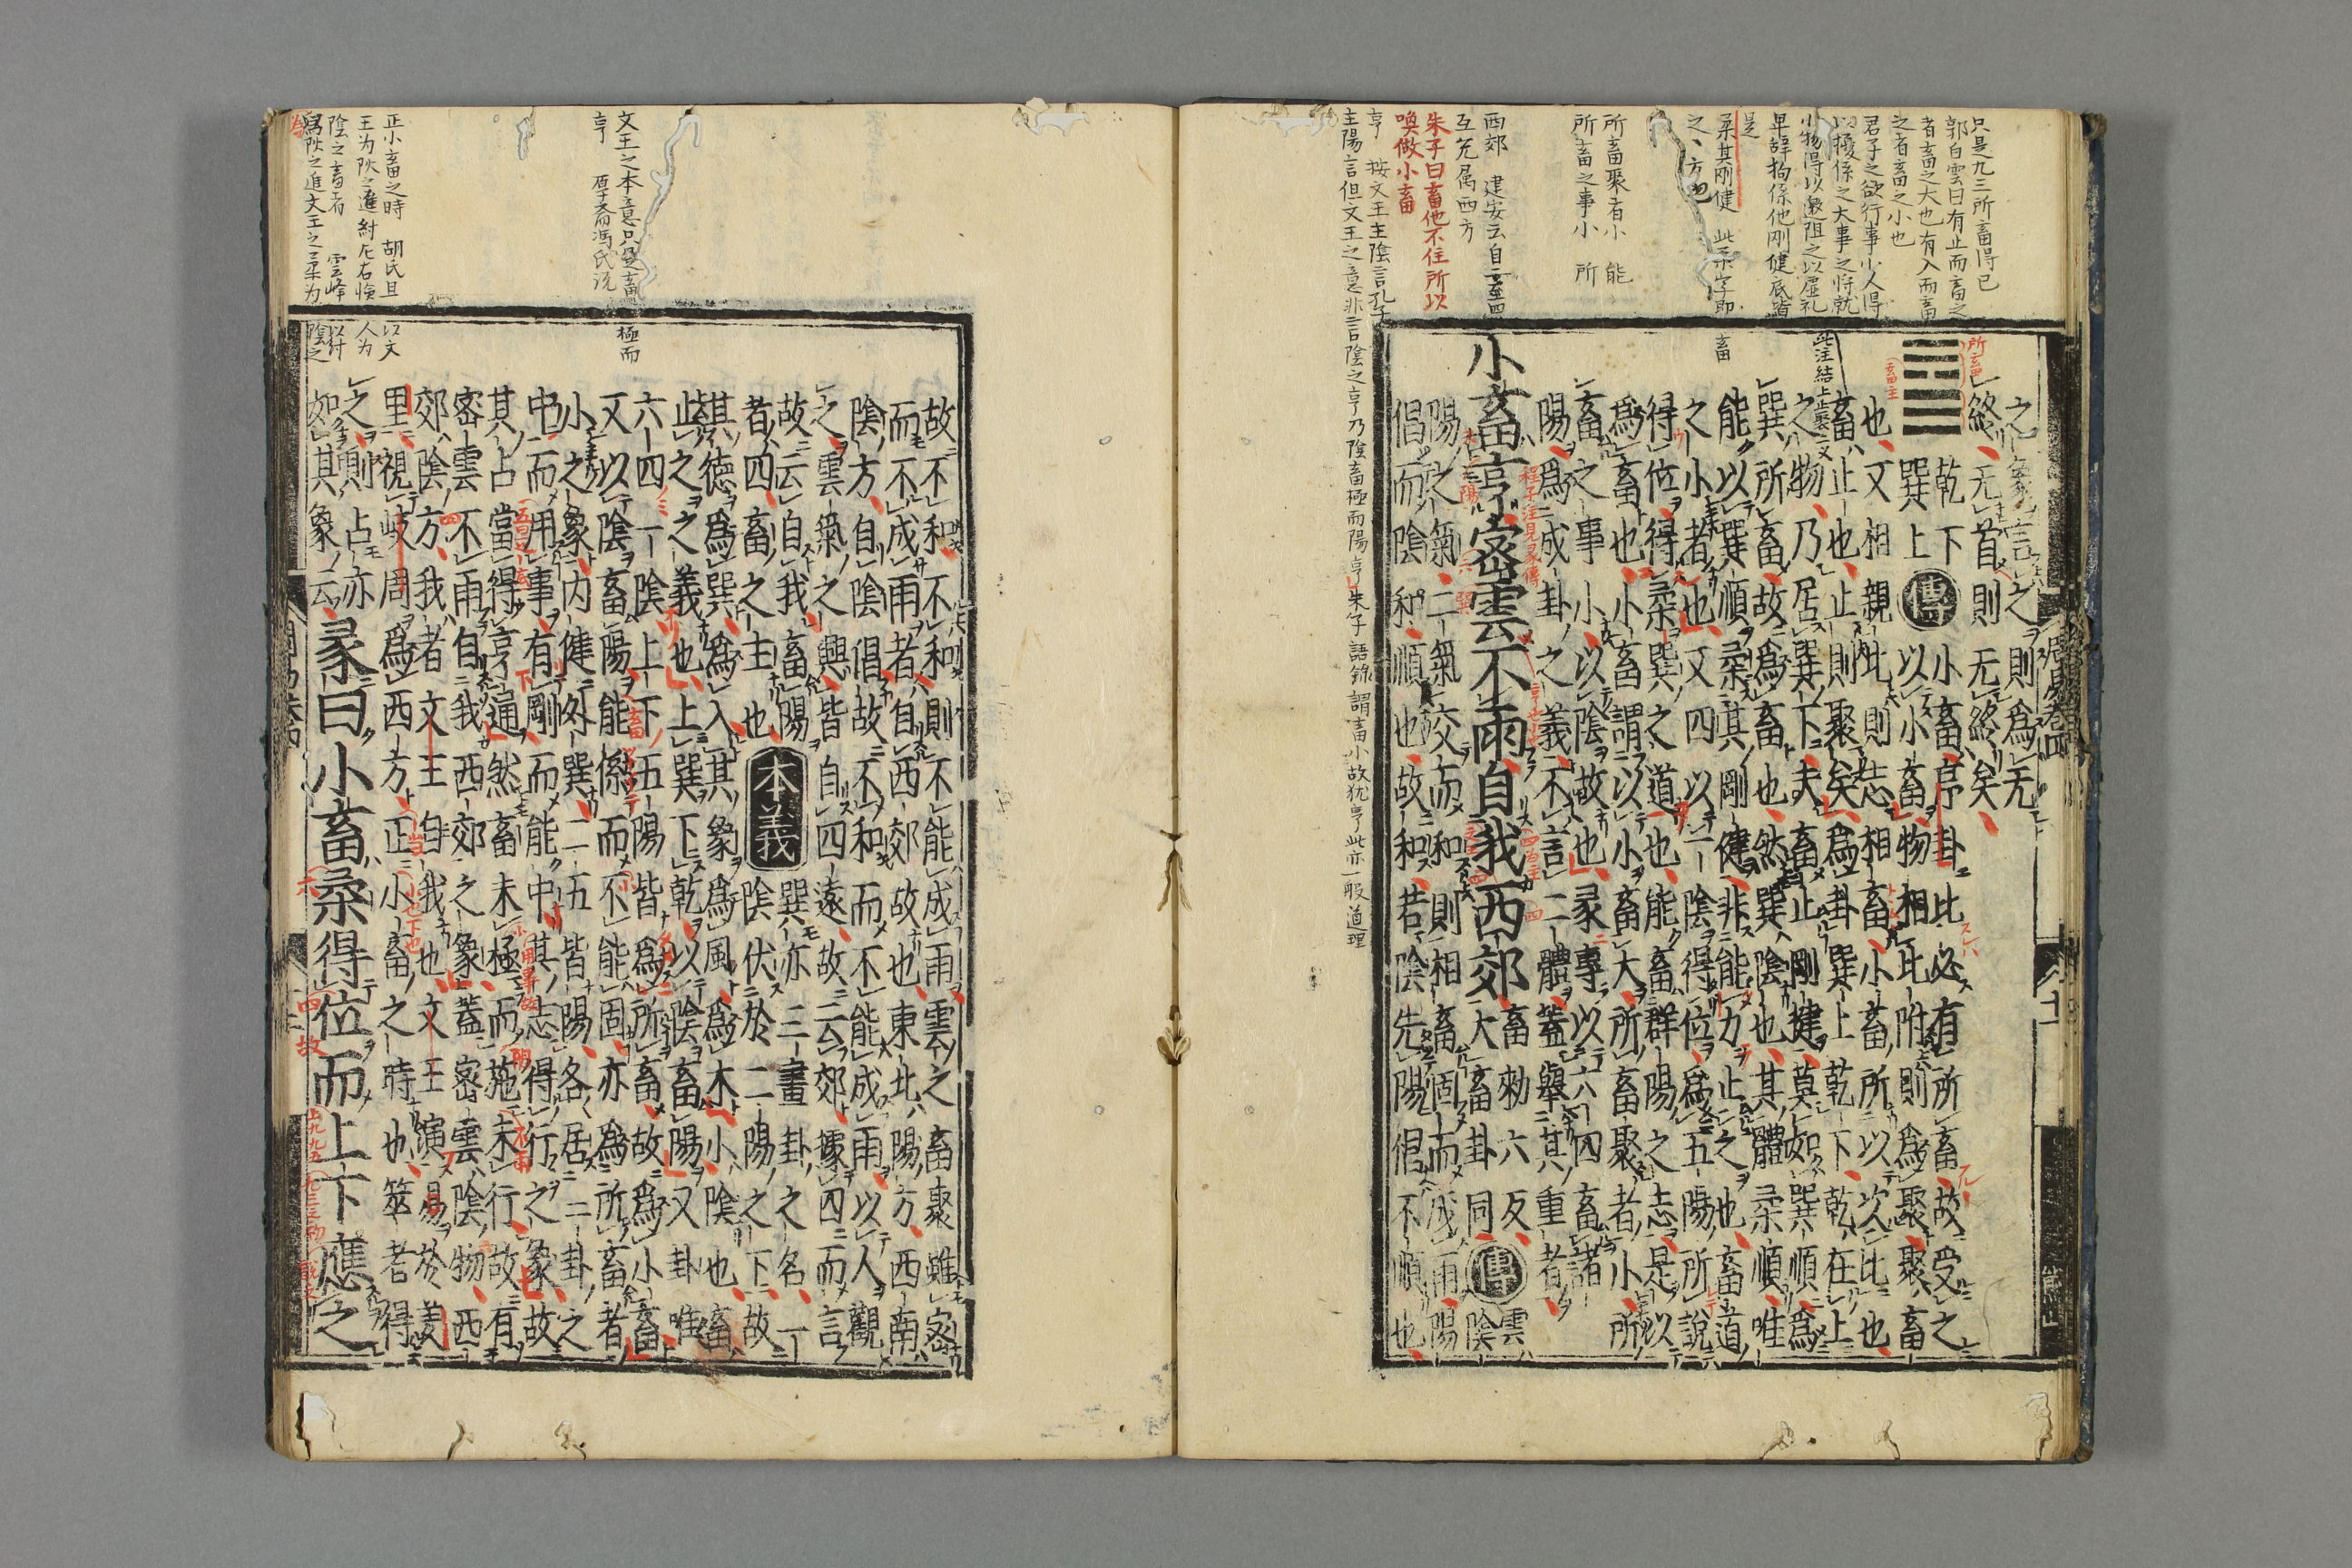 之象言之則爲无
終无首則无終矣
乾下
巽上
傳
小畜序卦比必有所畜故受之
以小畜物相比附則爲聚聚畜
也又相親比則志相畜小畜所以次比也
畜止也止則聚矣爲卦巽上乾下乾在上
之物乃居巽下夫畜止剛健莫如巽順爲
巽所畜故爲畜也然巽陰也其體柔順唯
能以巽順柔其剛健非能力止之也畜道
之小者也又四以一陰得位爲五陽所說
得位得柔巽之道也能畜群陽之志是以
爲畜也小畜謂以小畜大所畜聚者小所
畜之事小以陰故也彖專以六四畜諸
陽爲成卦之義不言二體蓋舉其重者
小畜亨密雲不雨自我西郊
畜勑六反
大畜卦同
傳
雲陰
陽之氣二氣交而和則相畜固而成雨陽
倡而陰和順也故和若陰先陽倡不順也
故不和不和則不能成雨雲之畜聚雖密
而不成雨者自西郊故也東北陽方西南
陰方自陰倡故不和而不能成雨以人觀
之雲氣之興皆自四遠故云郊據四而言
故云自我畜陽者四畜之主也
本義
巽亦三畫卦之名一
陰伏於二陽之下故
其德爲巽爲入其象爲風爲木小陰也畜
止之之義也上巽下乾以陰畜陽又卦唯
六四一陰上下五陽皆爲所畜故爲小畜
又以陰畜陽能係而不能固亦爲所畜者
小之象内健外巽二五皆陽各居一卦之
中而用事有剛而能中其志得行之象故
其占當得亨通然畜未極而施未行故有
密雲不雨自我西郊之象蓋密雲陰物西
郊陰方我者文王自我也文王演易於羑
里視岐周爲西方正小畜之時也筮者得
之則占亦
如其象云
彖曰小畜柔得位而上下應之
只是九三所畜得已
郭白雲曰有止而畜之
者畜之大也有入而畜
之者畜之小也
君子之欲行事小人得
以擾係之大事之將就
小物得以邀阻之以虛礼
卑辞拘係他剛健底皆
是
柔其剛健 此柔字即畜
之丶方也
所畜聚者小 能
所畜之事小 所
西郊 建安云自二至四
互兌属西方
朱子曰畜他不住所以
喚做小畜
亨 按文王主陰言孔子
主陽言但文王之意非言陰之亨乃陰畜極而陽亨朱子語錄謂畜小故犹亨此亦一般道理
文王之本意只是畜極而
亨 厚齋馮氏説
正小畜之時 胡氏且以文
王为陰之進紂左右憸人为
陰之畜者 雲峰以紂
爲陰之進文王之柔为陰之